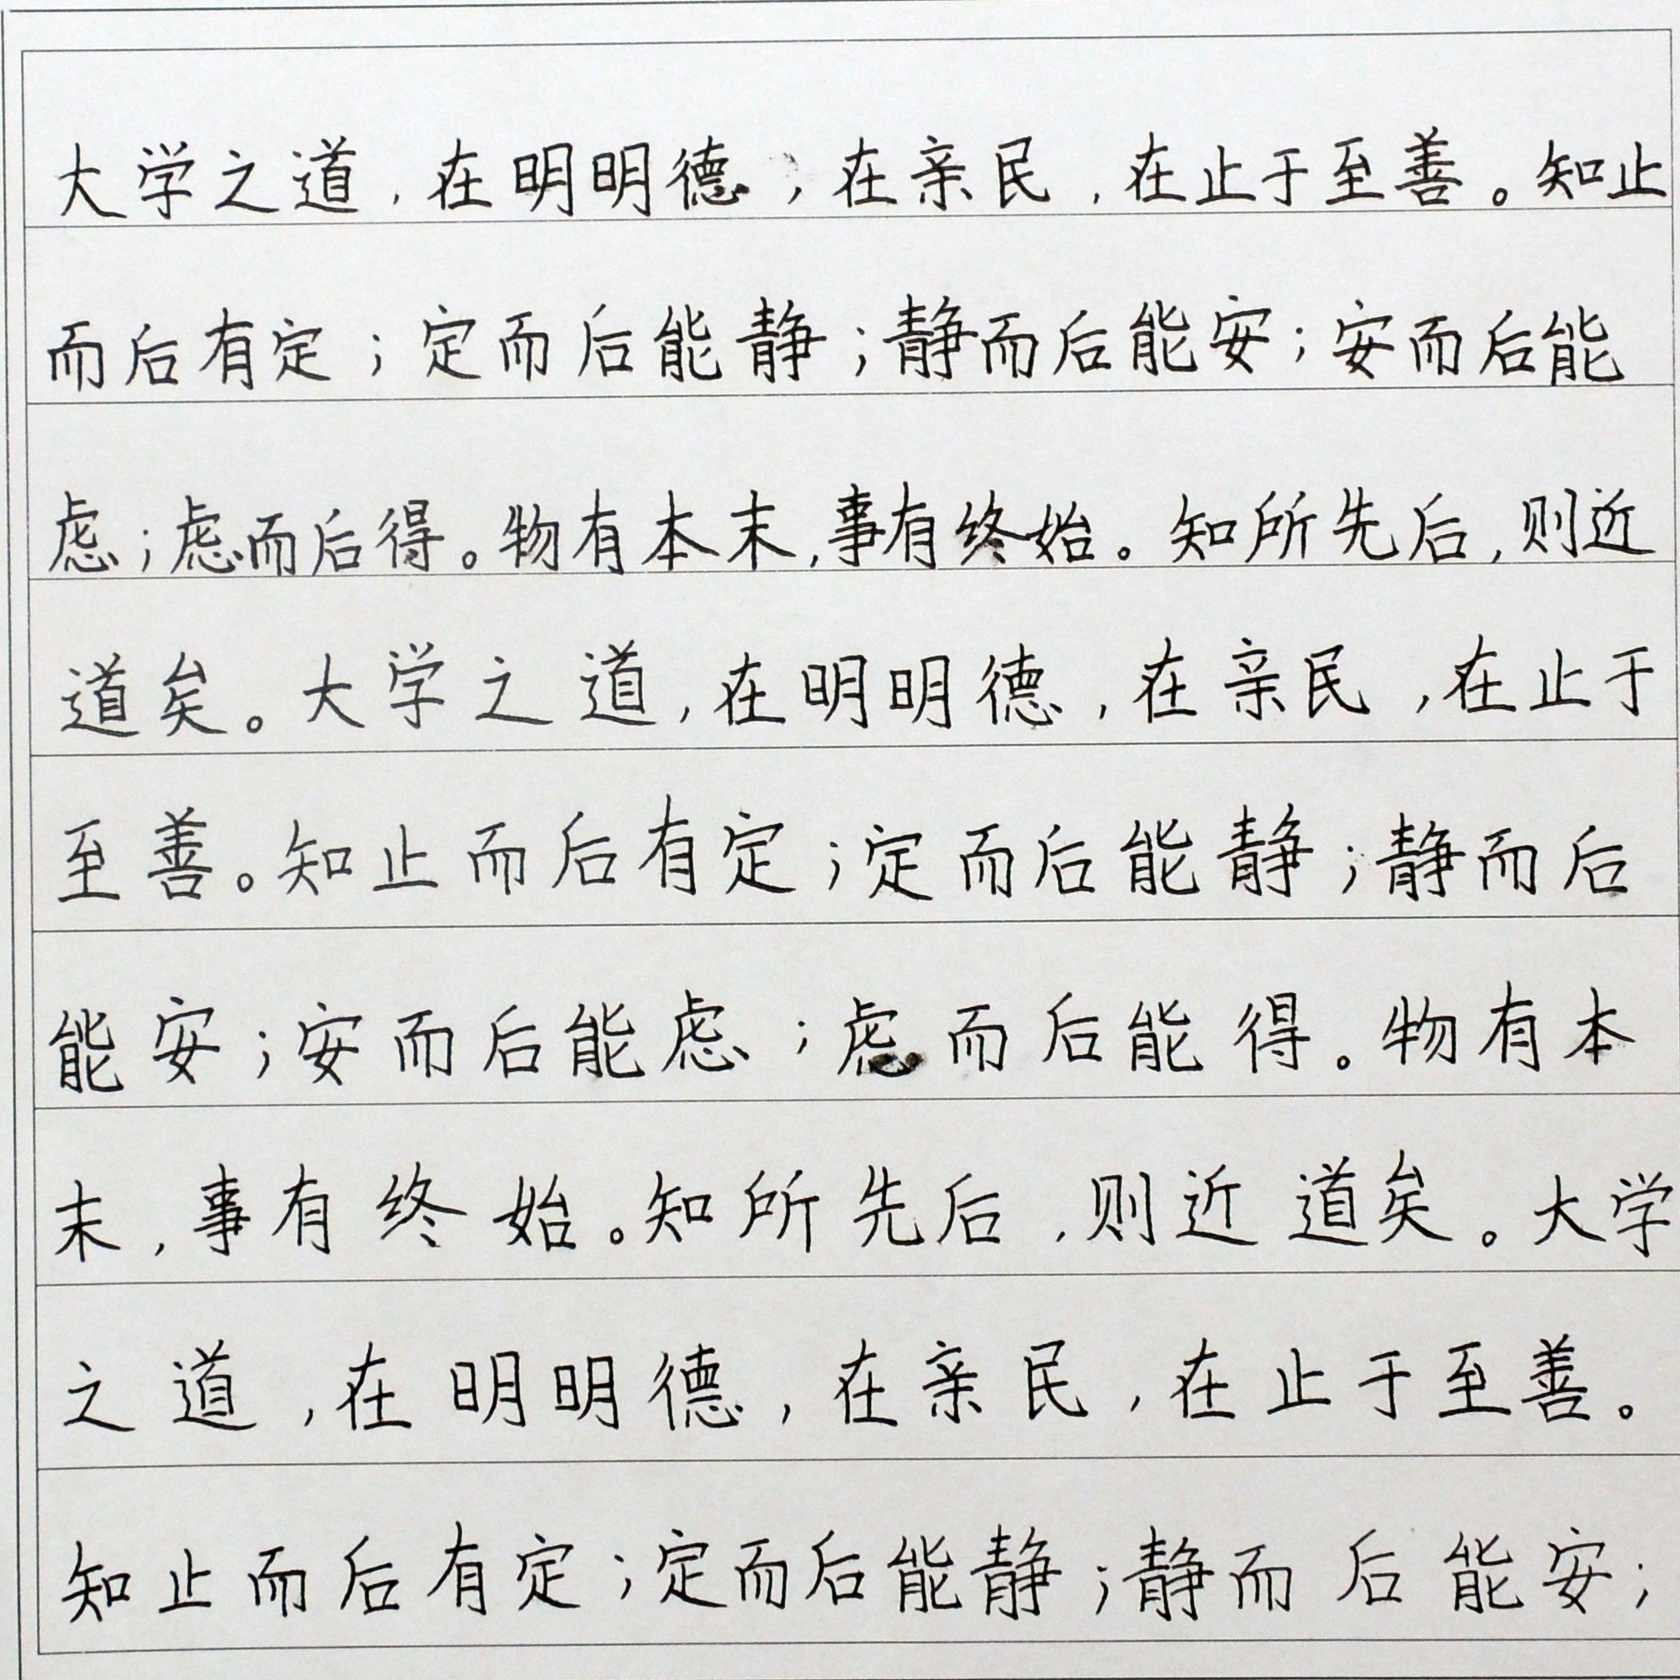 大学之道，在明明德，在亲民，在止于至善。知止
而后有定；定而后能静；静而后能安；安而后能
虑；虑而后得。物有本末，事有终始。知所先后，则近
道矣。大学之道，在明明德，在亲民，在止于
至善。知止而后有定；定而后能静；静而后
能安；安而后能虑；虑而后能得。物有本
末，事有终始。知所先后，则近道矣。大学
之道，在明明德，在亲民，在止于至善。
知止而后有定；定而后能静；静而后能安；